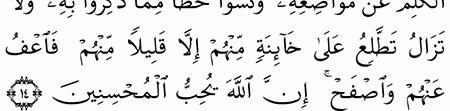 ٱلۡكَلِمَ عَن مَّوَاضِعِهِۦ وَنَسُواْ حَظّٗا مِّمَّا ذُكِّرُواْ بِهِۦۚ وَلَا
تَزَالُ تَطَّلِعُ عَلَىٰ خَآئِنَةٖ مِّنۡهُمۡ إِلَّا قَلِيلٗا مِّنۡهُمۡۖ فَٱعۡفُ
عَنۡهُمۡ وَٱصۡفَحۡۚ إِنَّ ٱللَّهَ يُحِبُّ ٱلۡمُحۡسِنِينَ ١٤